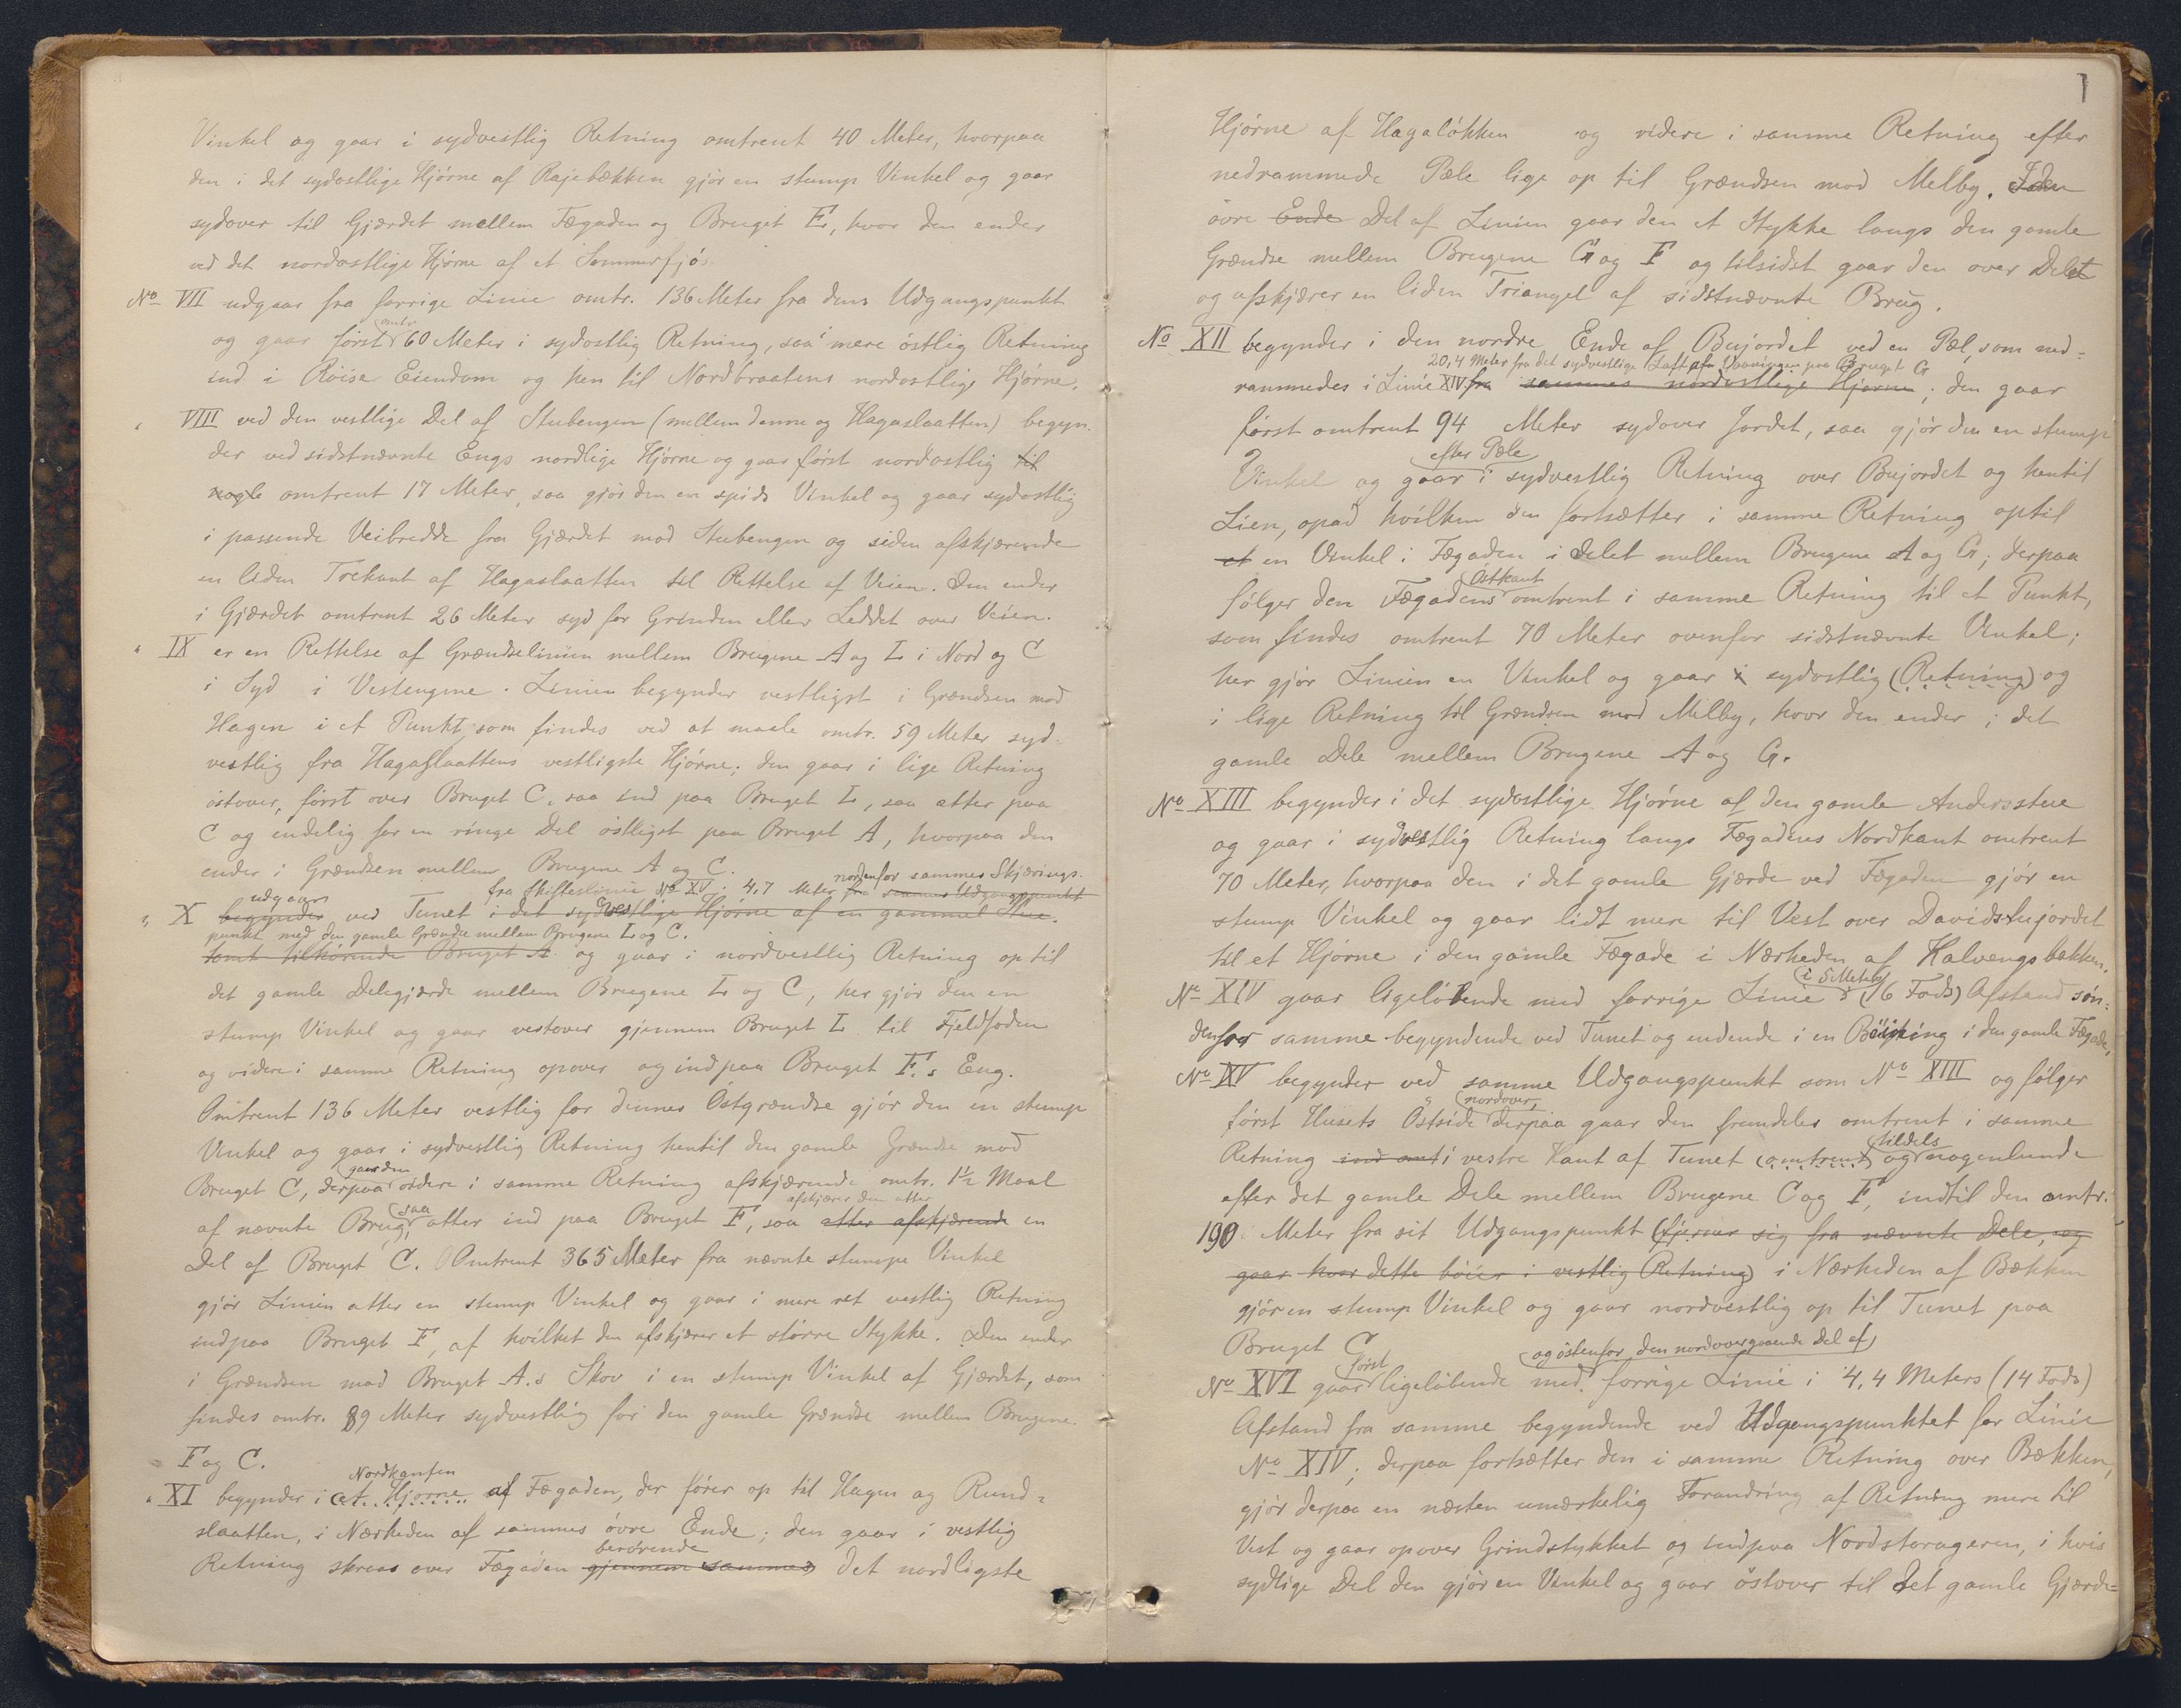 Vinkel og gaar i sydvestlig Retning omtrent 40 Meter, hvorpaa
den i det sydostlige Hjørne af Rajebækken gjør en stump Vinkel og gaar
sydover til Gjærdet mellem Fægaden og Bruget E, hvor den ender
ved det nordostlige Hjørne af et Sommerfjøs.
No VII udgaar fra forrige Linie omtr. 136 Meter fra dens Udgangspunkt
omtr.
og gaar først 60 Meter i sydostlig Retning, saa i mere östlig Retning
ind i Röise Eiendom og hen til Nordbraatens nordostlige Hjørne.
" VIII ved den vestlige Del af Stubengen (mellem denne og Hagaslaatten) begyn-
der ved sidstnævnte Engs nordlige Hjørne og gaar först nordostlig til
nogle omtrent 17 Meter, saa gjör den en spids Vinkel og gaar sydostlig
i passende Veibredde fra Gjærdet mod Stubengen og siden afskjærende
en liden Trekant af Hagaslaatten til Rettelse af Veien. Den ender
i Gjærdet omtrent 26 Meter syd for Grinden eller Leddet over Veien.
" IX er en Rettelse af Grændselinien mellem Brugene A og L i Nord og C
i Syd i Vestengene. Linien begynder vestligst i Grændsen mod
Hagen i et Punkt, som findes ved at maale omtr. 59 Meter syd-
vestlig fra Hagaslaattens vestligste Hjørne; den gaar i lige Retning
östover, först over Bruget C, saa ind paa Bruget L, saa atter paa
C og endelig for en ringe Del östligst paa Bruget A, hvorpaa den
ender i Grændsen mellem Brugene A og C.
udgaar fra Skifteslinie No XV i 4,7 Meter fra nordenfor sammes Skjærings-
sammes Udgangspunkt
" X begynder ved Tunet i det sydvestlige Hjørne af en gammel Stue
punkt med den gamle Grændse mellem Brugene L og C.
tomt tilhörende Bruget A og gaar i nordvestlig Retning op til
det gamle Delegjærde mellem Brugene L og C, her gjör den en
stump Vinkel og gaar vestover gjennem Bruget L til Fjeldfoden
og videre i samme Retning opover og indpaa Bruget F.s Eng.
Omtrent 136 Meter vestlig for dennes Östgrændse gjör den en stump
Vinkel og gaar i sydvestlig Retning hentil den gamle Grændse mod
gaar den
Bruget C, derpaa videre i samme Retning afskjærende omtr. 1½ Maal
saa afskjærer den atter
af nævnte Brug, atter ind paa Bruget F, saa atter afskjærende en
Del af Bruget C. Omtrent 365 Meter fra nævnte stumpe Vinkel
gjör Linien atter en stump Vinkel og gaar i mere ret vestlig Retning
indpaa Bruget F, af hvilket den afskjærer et större Stykke. Den ender
i Grændsen mod Bruget A.s Skov i en stump Vinkel af Gjærdet, som
findes omtr. 89 Meter sydvestlig for den gamle Grændse mellem Brugene
F og C.
Nordkanten
" XI begynder i (et Hjørne af Fægaden, der fører op til Hagen og Rund-
slaatten, i Nærheden af sammes övre Ende; den gaar i vestlig
berörende
Retning skraas over Fægaden gjennem sammes det nordligste
1
Hjörne af Hagalökken og videre i samme Retning efter
nedrammede Pæle lige op til Grændsen mod Melby. I den
övre Ende Del af Linien gaar den et Stykke langs den gamle
Grændse mellem Brugene G og F og tilsidst gaar den over Delet
og afskjærer en liden Triangel af sidstnævnte Brug.
No XII begynder i den nordre Ende af Bujordet ved en Pæl, som ned-
20,4 Meter fra det sydvestlige Laft af Vaaningen paa Bruget G
rammedes i Linie XIV fra sammes nordvestlige Hjørne; den gaar
först omtrent 94 Meter sydover Jordet, saa gjör den en stump
efter Pæle
Vinkel og gaar i sydvestlig Retning over Bujordet og hentil
Lien, opad hvilken den fortsætter i samme Retning optil
et en Vinkel i Fægaden i Delet mellem Brugene A og G; derpaa
Östkant
fölger den Fægadens omtrent i samme Retning til et Punkt,
som findes omtrent 70 Meter ovenfor sidstnævnte Vinkel;
her gjör Linien en Vinkel og gaar i sydostlig (Retning) og
i lige Retning til Grændsen mod Melby, hvor den ender i det
gamle Dele mellem Brugene A og G.
No XIII begynder i det sydostlige Hjörne af den gamle Andersstue
og gaar i sydvestlig Retning langs Fægadens Nordkant omtrent
70 Meter, hvorpaa den i det gamle Gjærde ved Fægaden gjör en
stump Vinkel og gaar lidt mere til Vest over Davidstujordet
til et Hjörne i den gamle Fægade i Nærheden af Kalvengsbækken.
i 5 Meters
No XIV gaar ligelöbende med forrige Linie i (16 Fods) Afstand sön-
denfor samme begyndende ved Tunet og endende i en Böining i den gamle Fægade,
No XV begynder ved samme Udgangspunkt som No XIII og fölger
nordover,
först Husets Östside derpaa gaar den fremdeles omtrent i samme
tildels
Retning ind mot i vestre Kant af Tunet (omtrent) og nogenlunde
efter det gamle Dele mellem Brugene C og F, indtil den omtr.
190 Meter fra sit Udgangspunkt (fjerner sig fra nævnte Dele, og
gaar hvor dette böier i vestlig Retning) i Nærheden af Bækken
gjör en stump Vinkel og gaar nordvestlig op til Tunet paa
Bruget C
først og östenfor den nordovergaaende Del af
No XVI gaar ligelöbende med forrige Linie i 4,4 Meters (14 Fods)
Afstand fra samme begyndende ved Udgangspunktet for Linie
No XIV; derpaa fortsætter den i samme Retning over Bækken,
gjör derpaa en næsten umærkelig Forandring af Retning mere til
Vest og gaar opover Grindstykket og indpaa Nordstorageren, i hvis
sydlige Del den gjör en Vinkel og gaar östover til det gamle Gjærde-